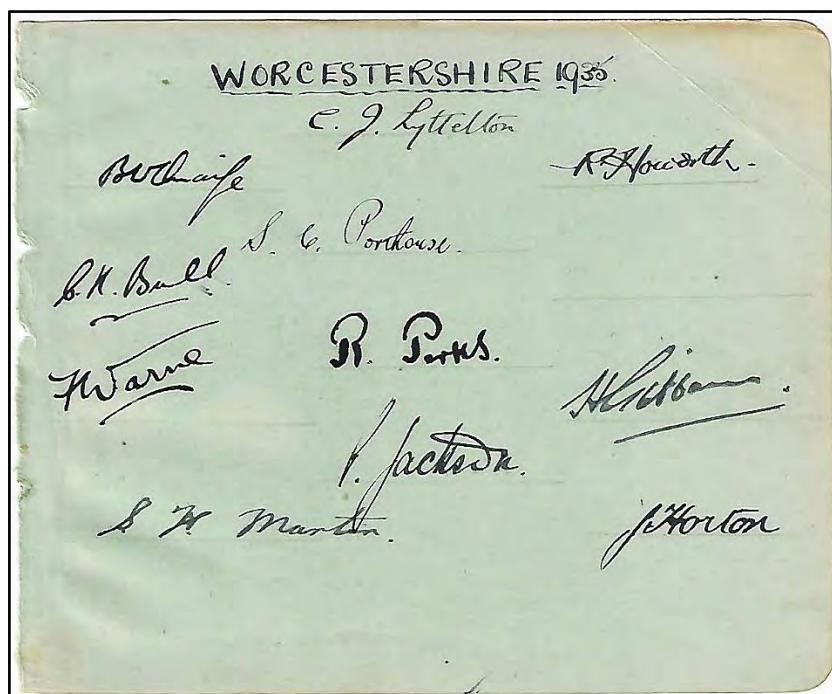 WORCESTERSHIRE 1935.
C. J. Lyttelton
B W Quaife
R. Howorth.
S. C. Porthouse.
C. H. Bull.
R. Perks.
F Warne
H Gibbons.
P. Jackson.
S. H. Martin.
J Horton